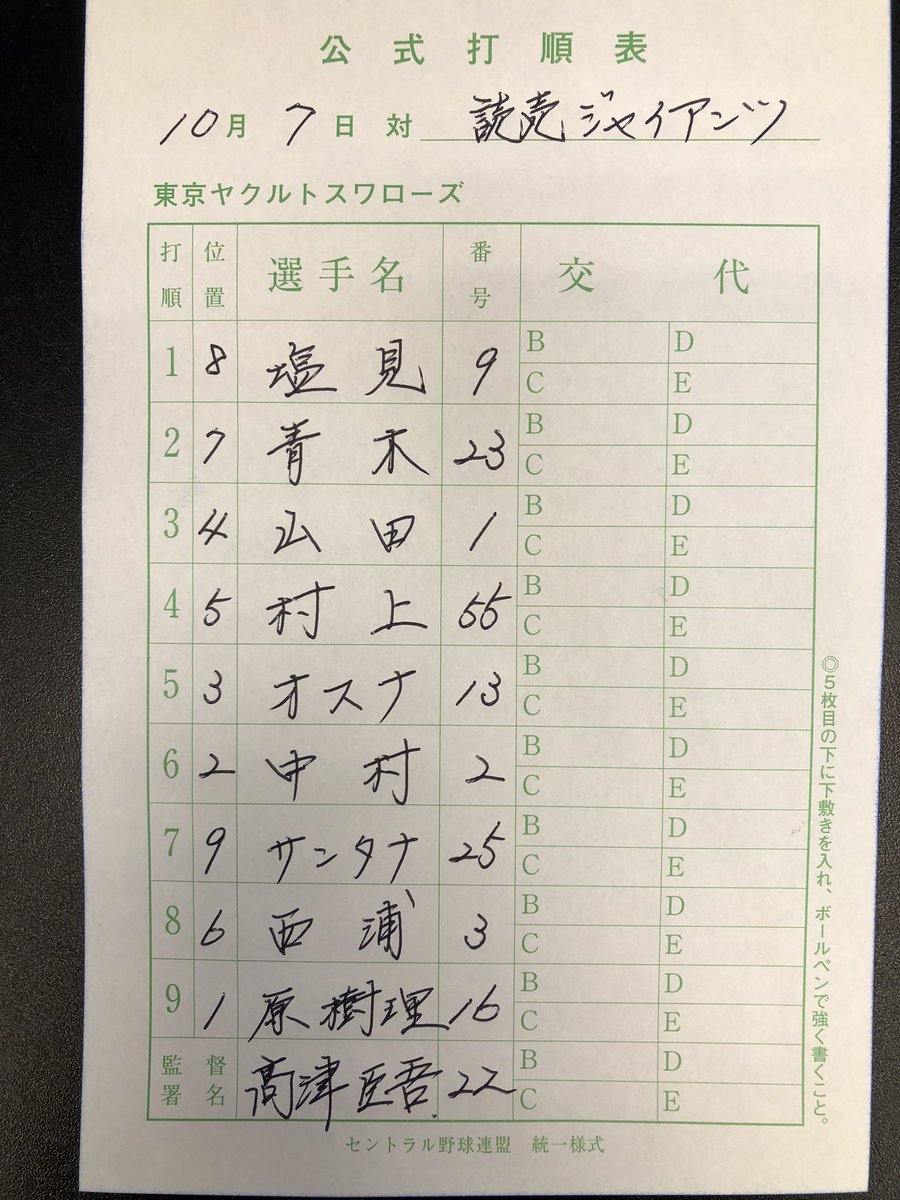 公式打順表
10月 7日 対 読売ジャイアンツ
東京ヤクルトスワローズ
打順 位置 選手名 番号 交代
1 8 塩見 9 B D
C E
2 7 青木 23 B D
C E
3 4 山田 1 B D
C E
4 5 村上 55 B D
C E
5 3 オスナ 13 B D
C E
6 2 中村 2 B D
C E
7 9 サンタナ 25 B D
C E
8 6 西浦 3 B D
C E
9 1 原樹理 16 B D
C E
監督署名 高津臣吾 22 B D
C E
◎5枚目の下に下敷きを入れ、ボールペンで強く書くこと。
セントラル野球連盟 統一様式